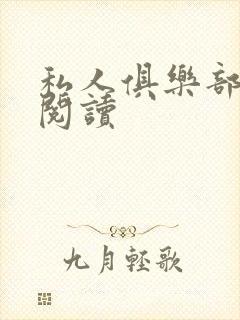 私人俱樂部
閱讀
九月輕歌